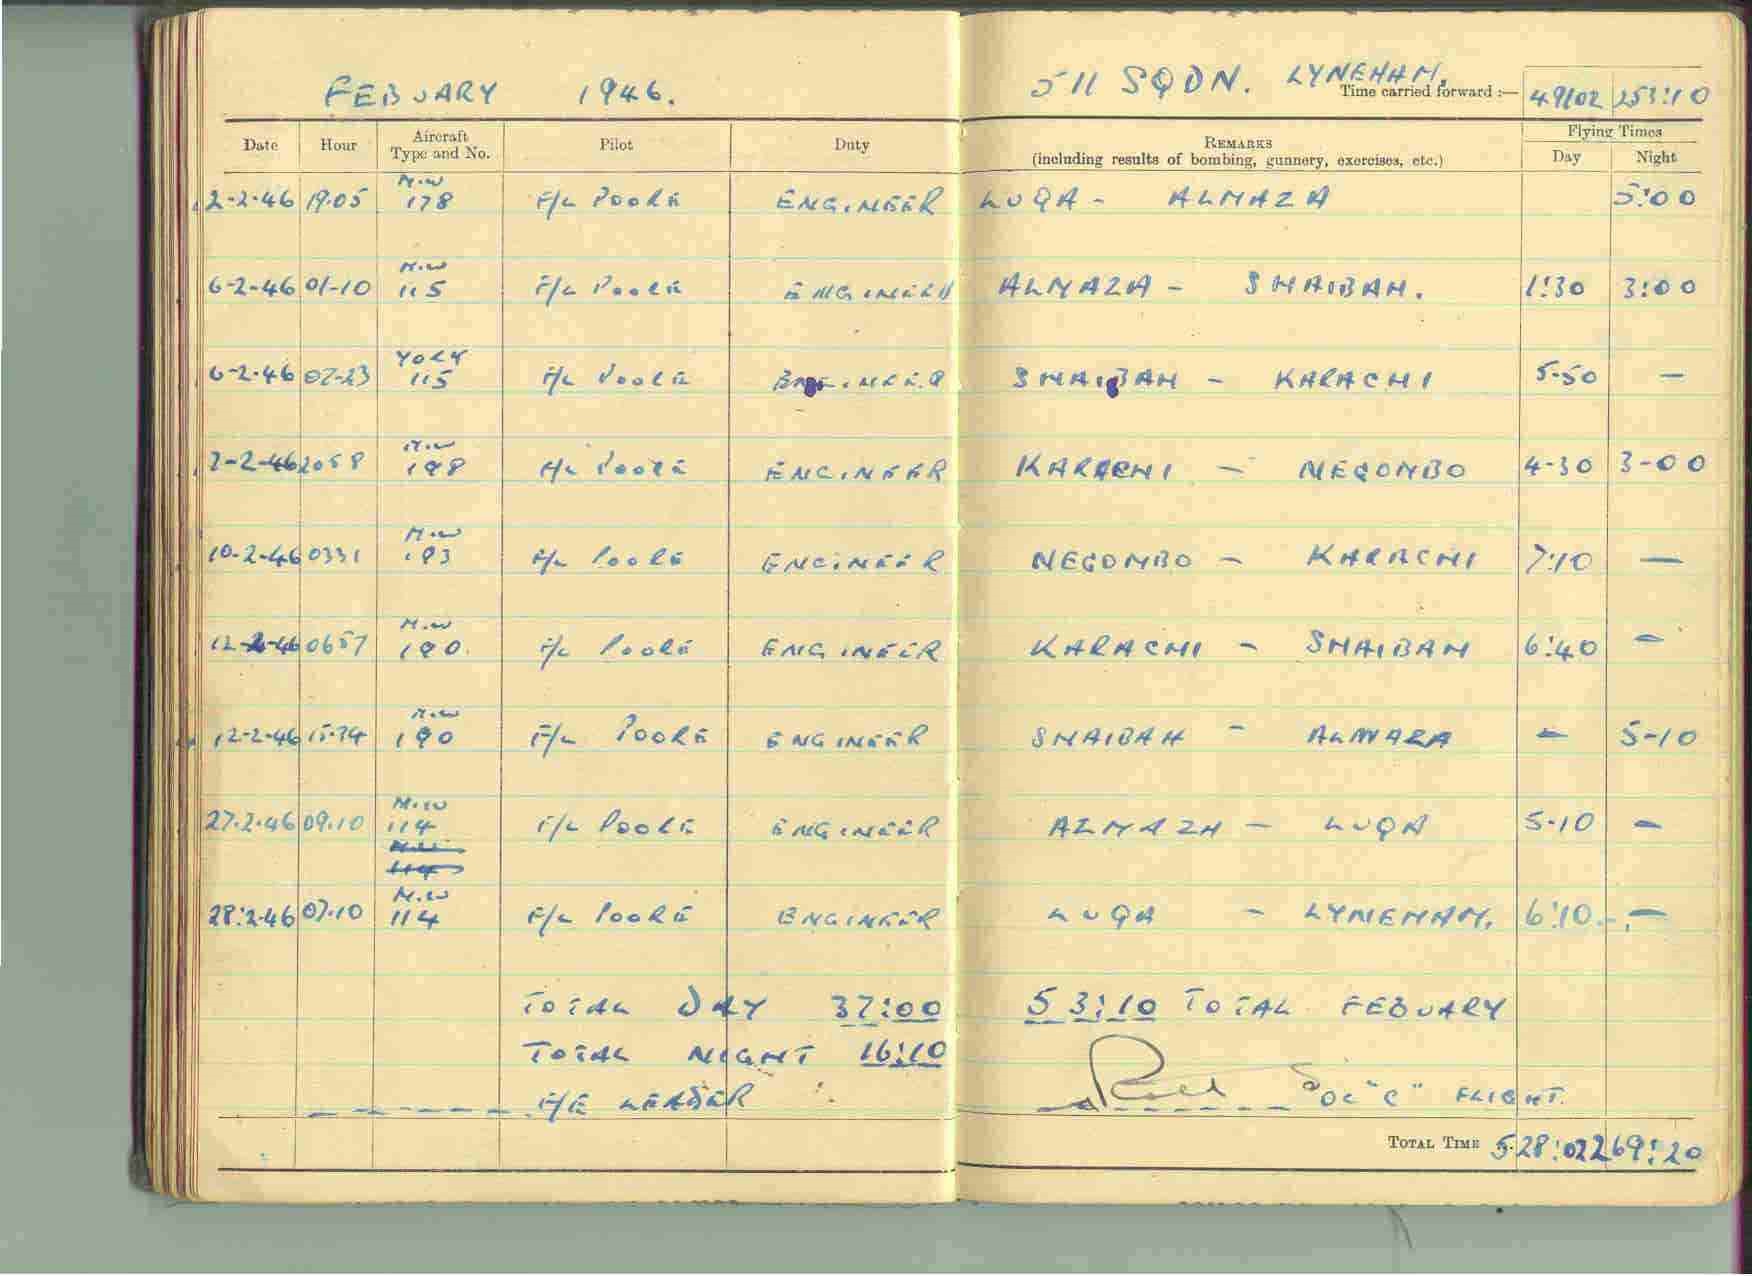 FEBUARY 1946. 511 SQDN. LYNEHAM.
Time carried forward :— 491:02 253:10
Date Hour Aircraft Type and No. Pilot Duty REMARKS (including results of bombing, gunnery, exercises, etc.) Flying Times Day Night
2-2-46 19.05 M.W 178 F/L POOLE ENGINEER LUQA - ALMAZA 5:00
6-2-46 01-10 M.W 115 F/L POOLE ENGINEER ALMAZA - SHAIBAH. 1:30 3:00
6-2-46 07-23 YORK 115 F/L POOLE ENGINEER SHAIBAH - KARACHI 5-50 —
7-2-46 2058 M.W 198 F/L POOLE ENGINEER KARACHI - NEGOMBO 4-30 3-00
10-2-46 0331 M.W 193 F/L POOLE ENGINEER NEGOMBO - KARACHI 7:10 —
12-2-46 0657 M.W 190. F/L POOLE ENGINEER KARACHI - SHAIBAH 6:40 —
12-2-46 M.W 190 F/L POOLE ENGINEER SHAIBAH - ALMAZA - 5-10
27.2.46 09.10 M.W 114 F/L POOLE ENGINEER ALMAZA - LUQA 5-10 —
28:2.46 07.10 M.W 114 F/L POOLE ENGINEER LUQA - LYNEHAM. 6:10. —
TOTAL DAY 37:00 53:10 TOTAL FEBUARY
TOTAL NIGHT 16:10
F/E LEADER "OC "C" FLIGHT.
TOTAL TIME 528:02 269:20